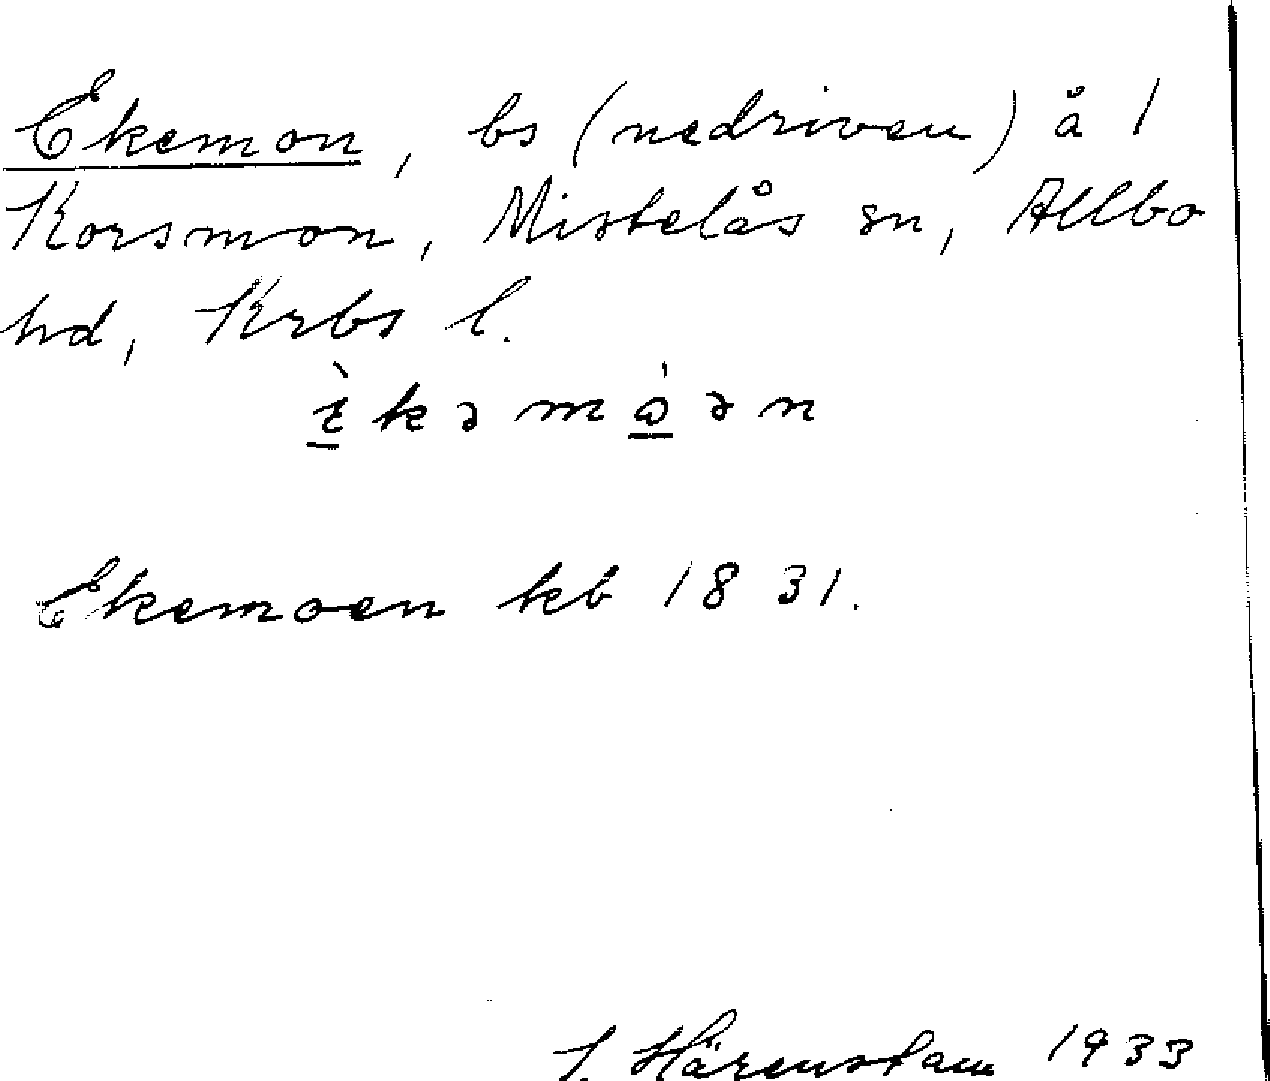 Ekemon, bs (nedriven) å 1
Korsmon, Mistelås sn, Allbo
hd, Krbs l.
Ekemoen kb 1831.
Härenstam 1933